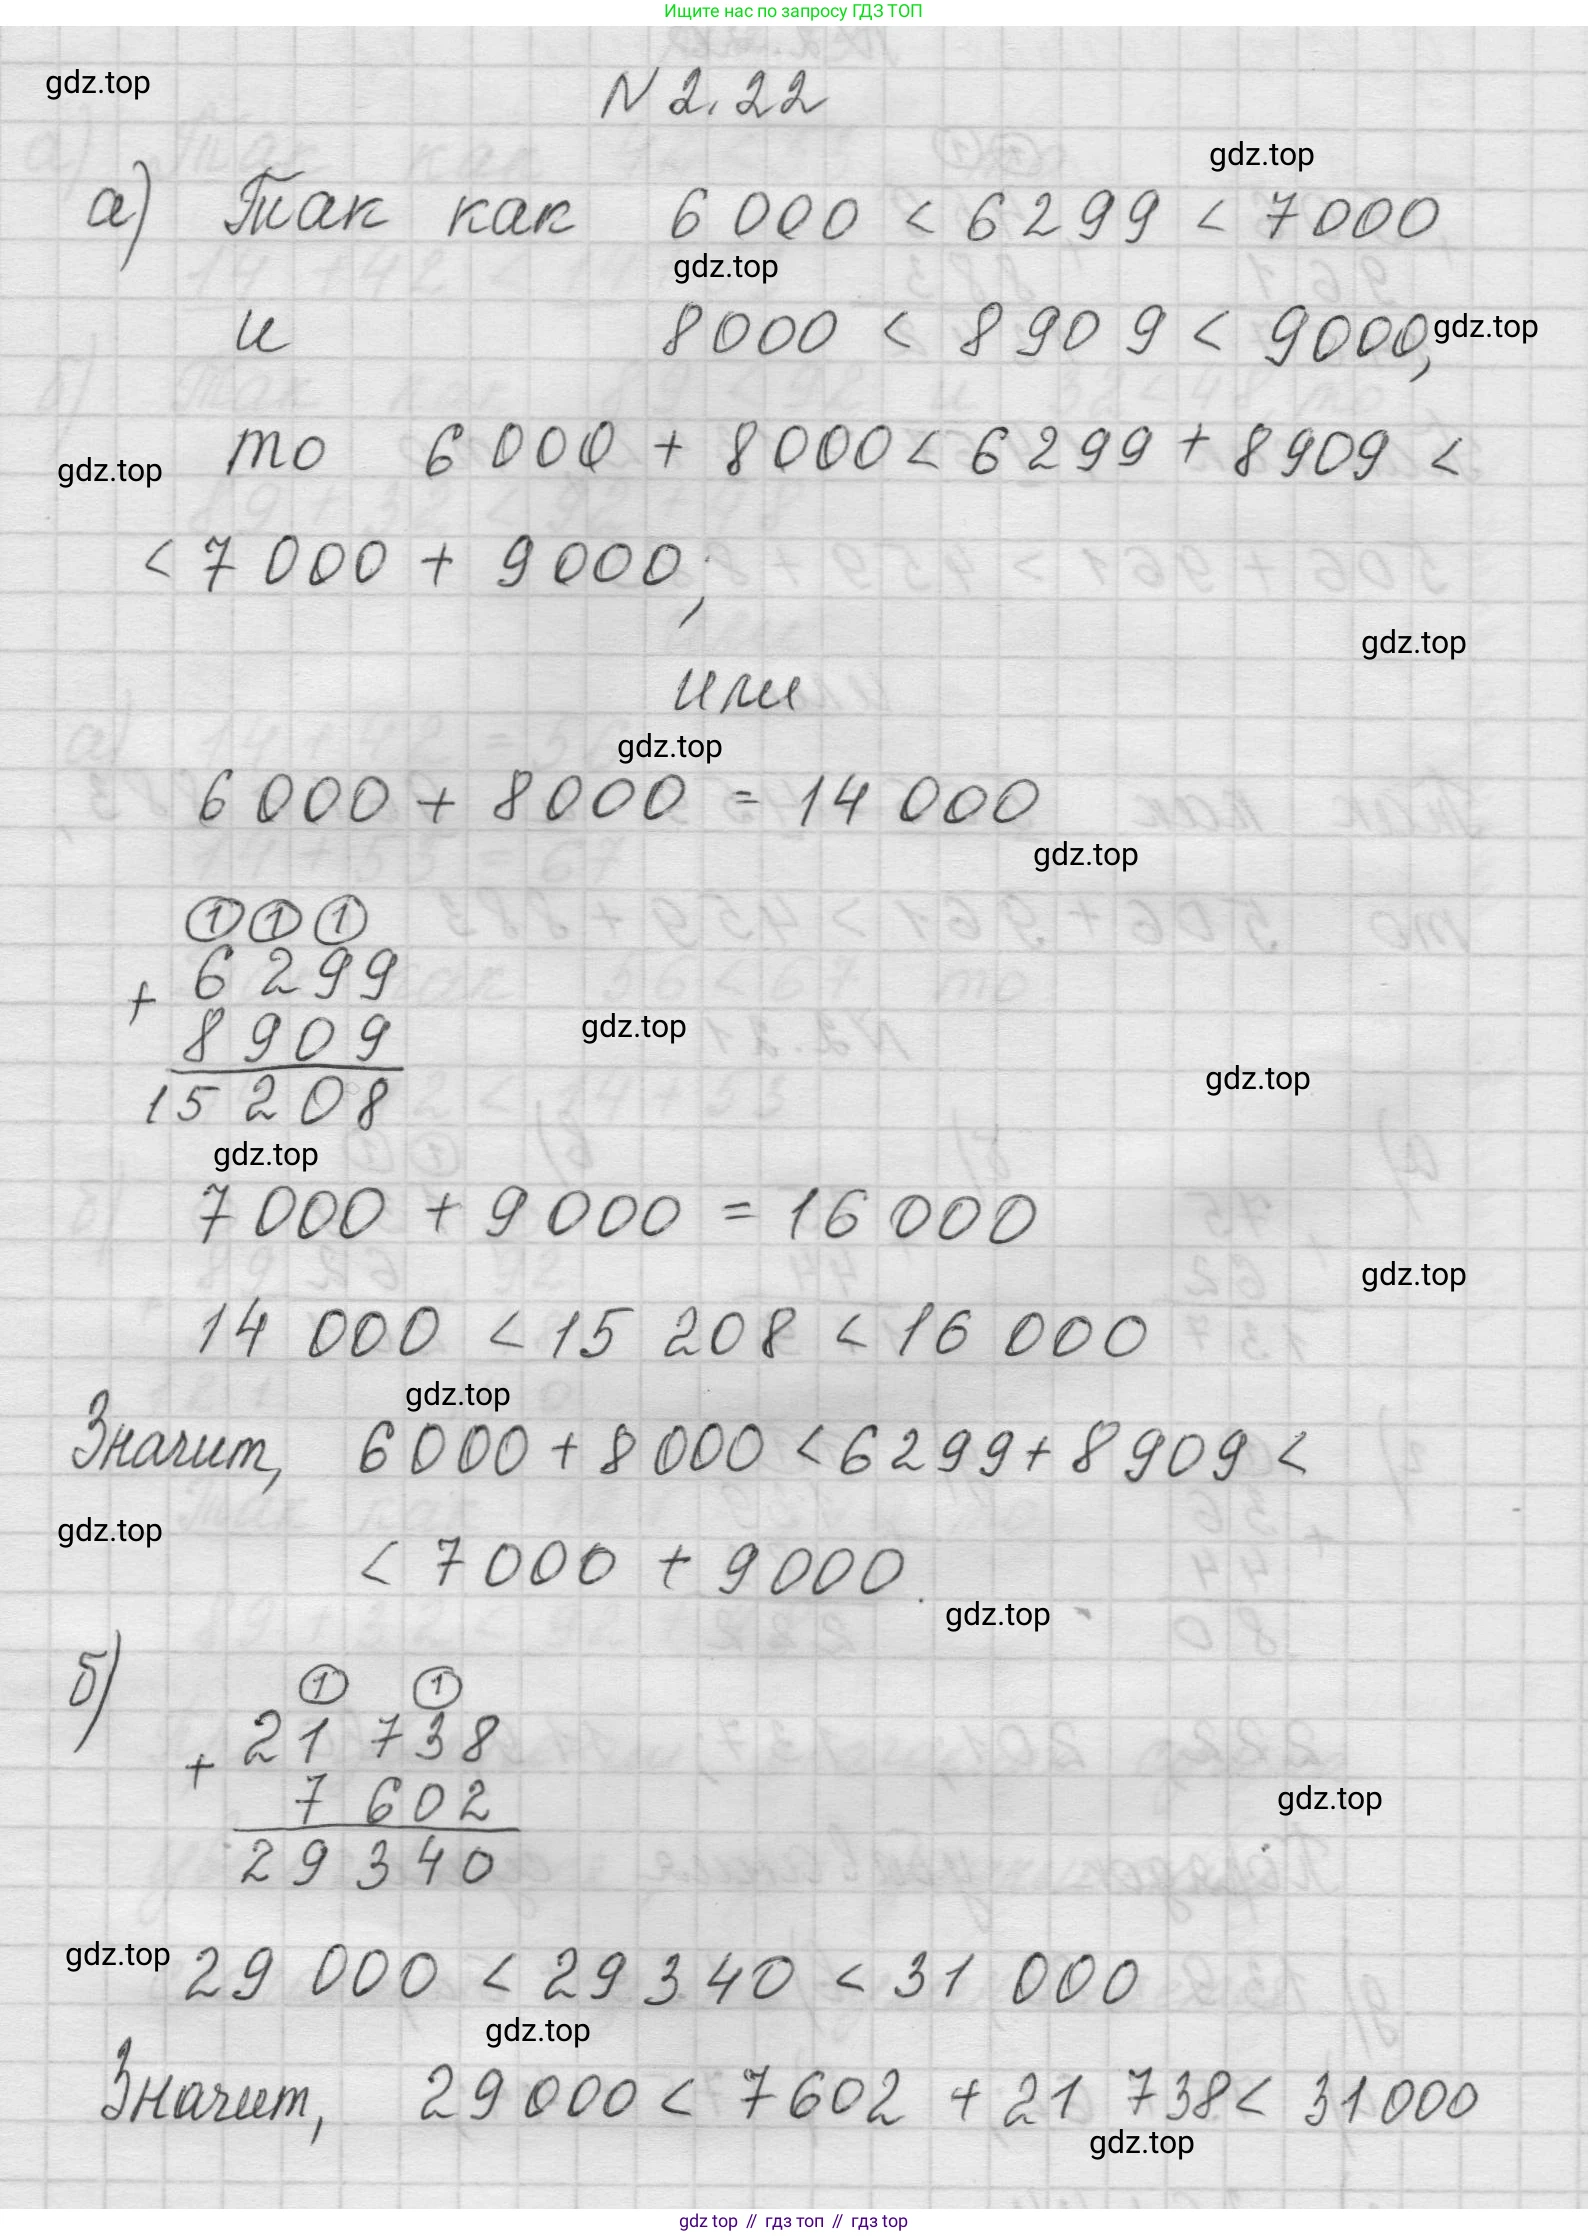 Ищите нас по запросу ГДЗ ТОП
gdz.top
N 2.22
gdz.top
а) Так как 6 000 < 6 299 < 7 000
gdz.top
и 8000 < 8 909 < 9000,
gdz.top
то 6 000 + 8 000 < 6 299 + 8 909 <
gdz.top
< 7 000 + 9 000;
gdz.top
или
gdz.top
6 000 + 8 000 = 14 000
gdz.top
1 1 1
6 2 9 9
+
gdz.top
8 9 0 9
gdz.top
15 2 0 8
gdz.top
7 000 + 9 000 = 16 000
gdz.top
14 000 < 15 208 < 16 000
gdz.top
Значит, 6 000 + 8 000 < 6 299 + 8 909 <
gdz.top
< 7 000 + 9 000.
gdz.top
б)
1 1
21 738
+
7 602
gdz.top
29 340
gdz.top
29 000 < 29 340 < 31 000
gdz.top
Значит, 29 000 < 7 602 + 21 738 < 31 000
gdz.top
gdz top // гдз топ // гдз top